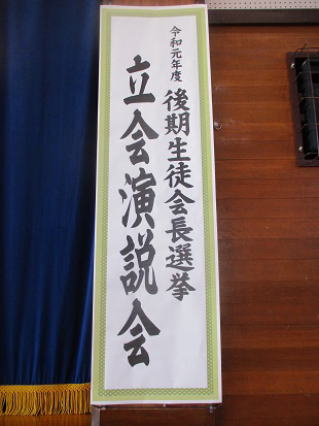 令和元年度
後期生徒会長選挙
立会演説会